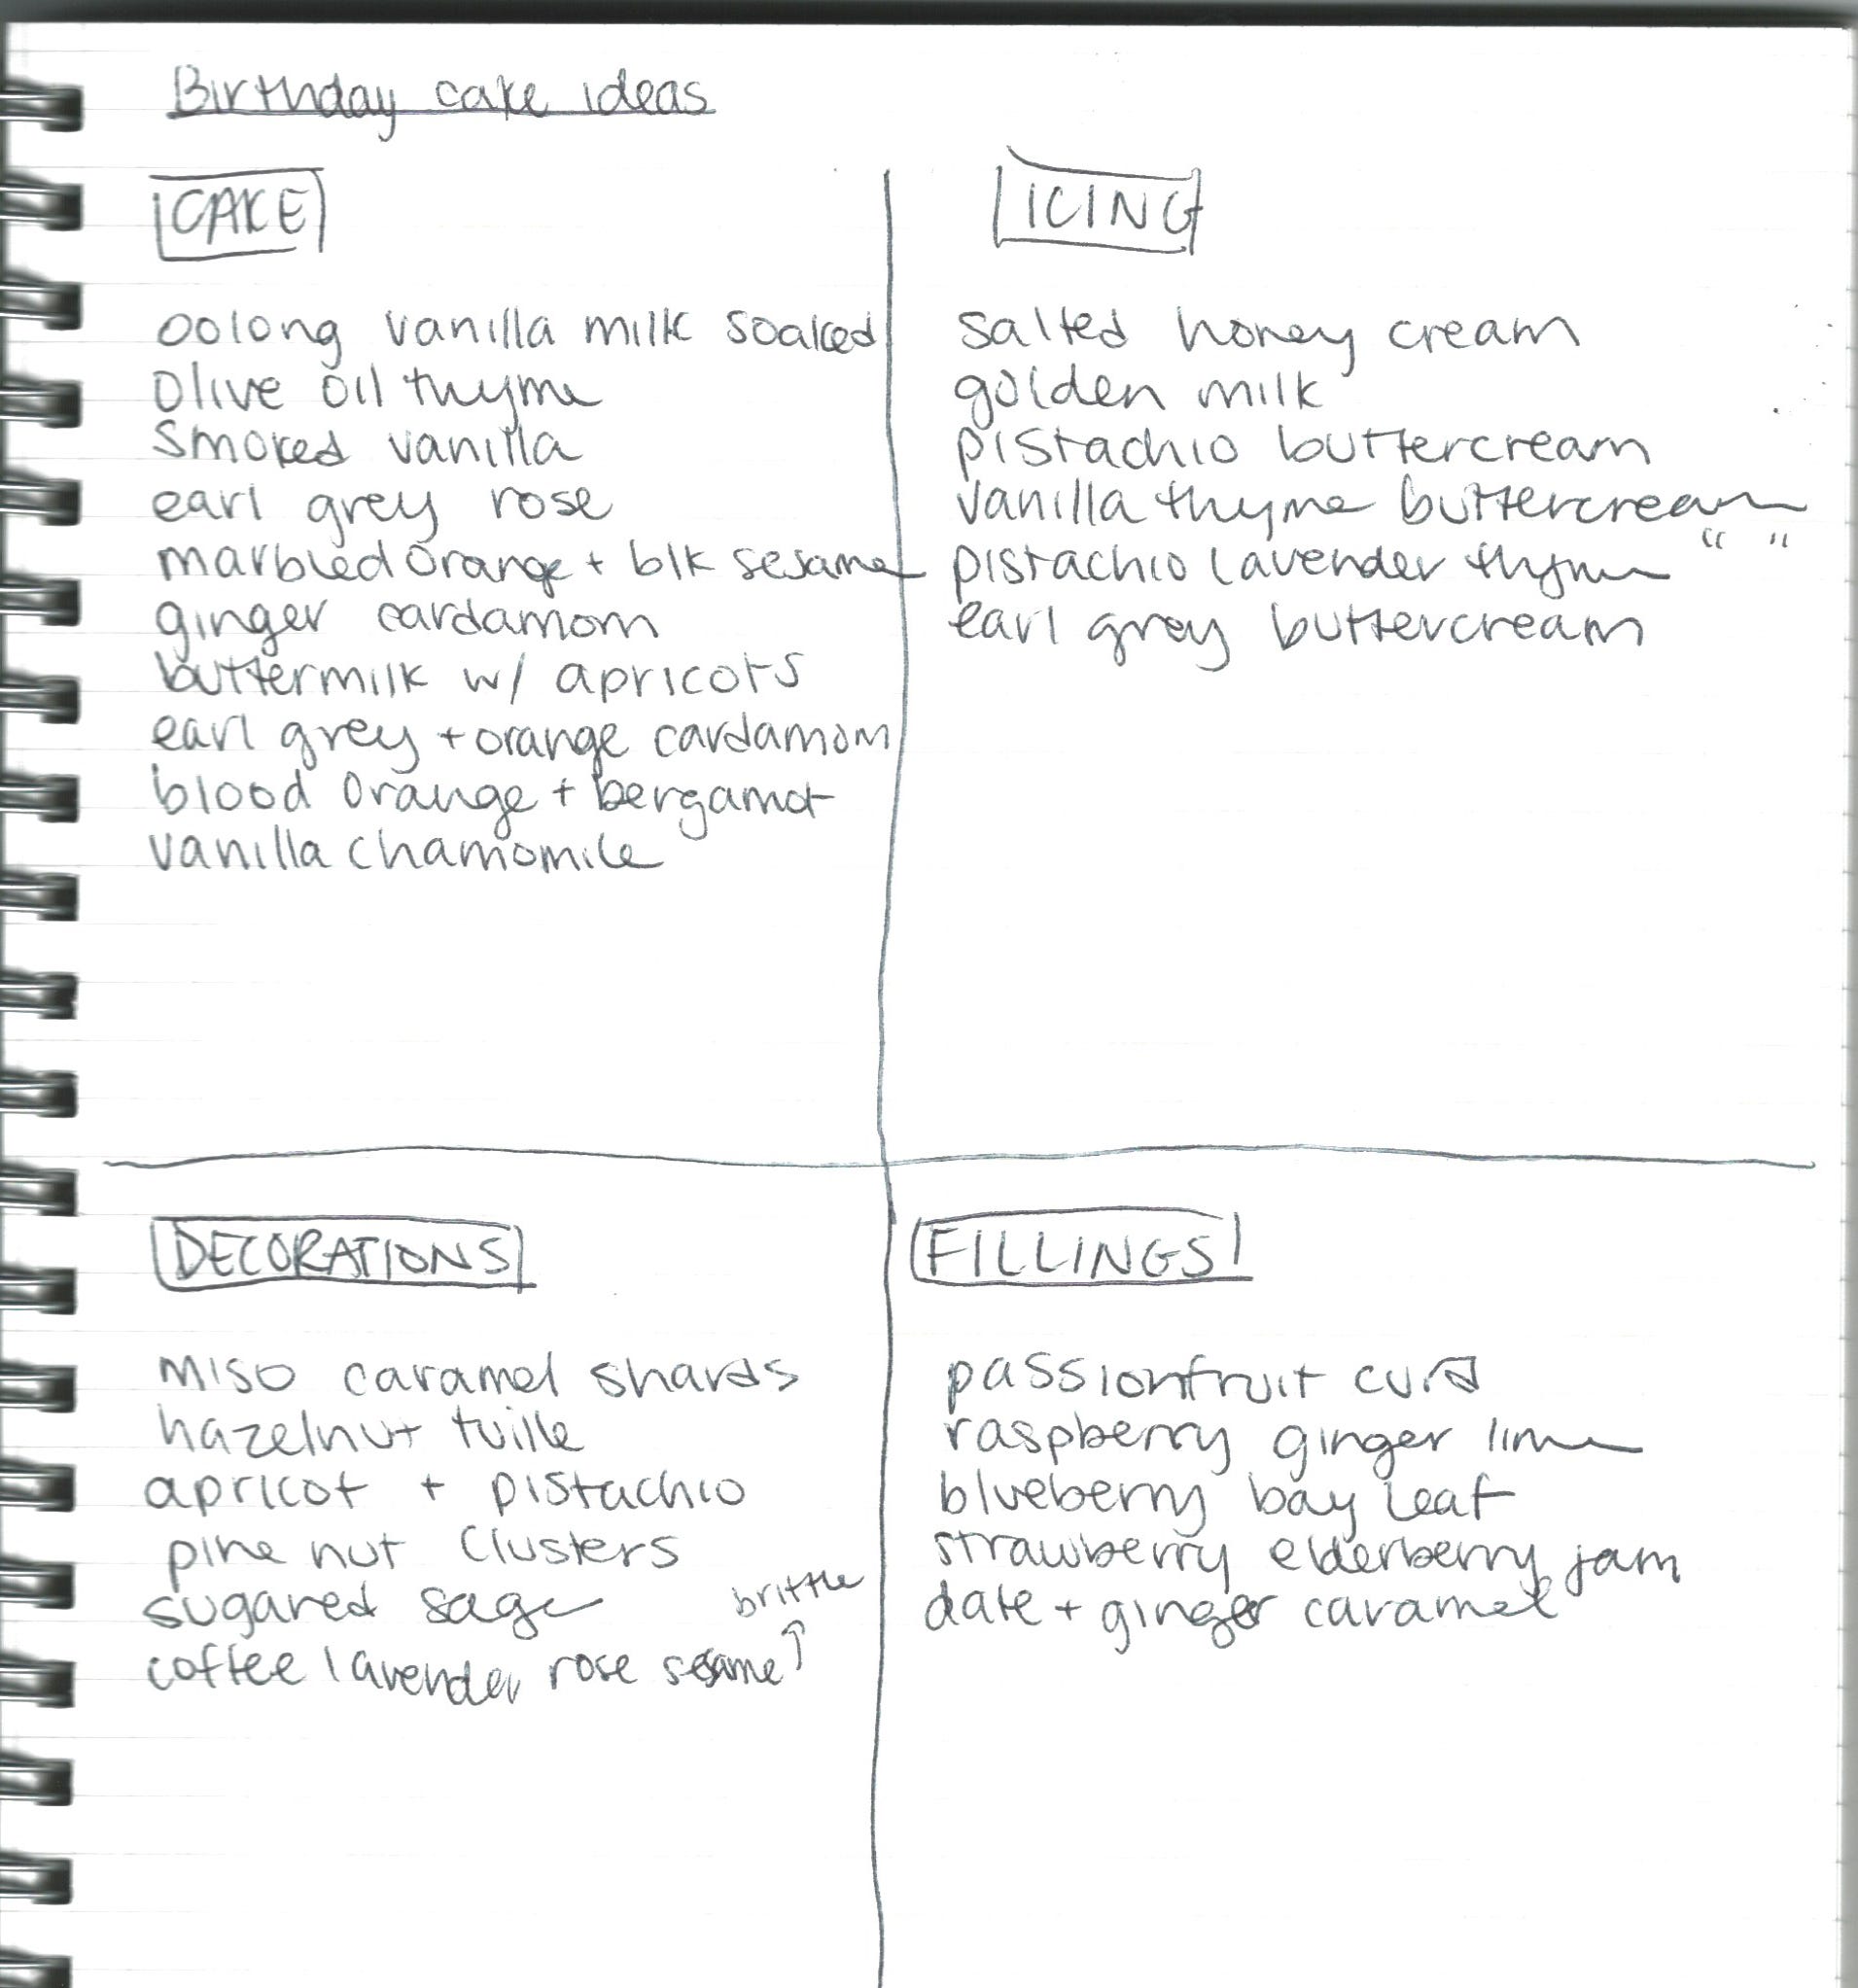 Birthday cake ideas
CAKE
oolong vanilla milk soaked
Olive oil thyme
Smoked vanilla
earl grey rose
marbled orange + blk sesame
ginger cardamom
buttermilk w/ apricots
earl grey + orange cardamom
blood orange + bergamot
vanilla chamomile
ICING
salted honey cream
golden milk
pistachio buttercream
vanilla thyme buttercream
pistachio lavender thyme " "
earl grey buttercream
DECORATIONS
miso caramel shards
hazelnut tuille
apricot + pistachio
pine nut clusters
sugared sage
coffee lavender rose sesame ↑
brittle
FILLINGS
passionfruit curd
raspberry ginger lime
blueberry bay leaf
strawberry elderberry jam
date + ginger caramel